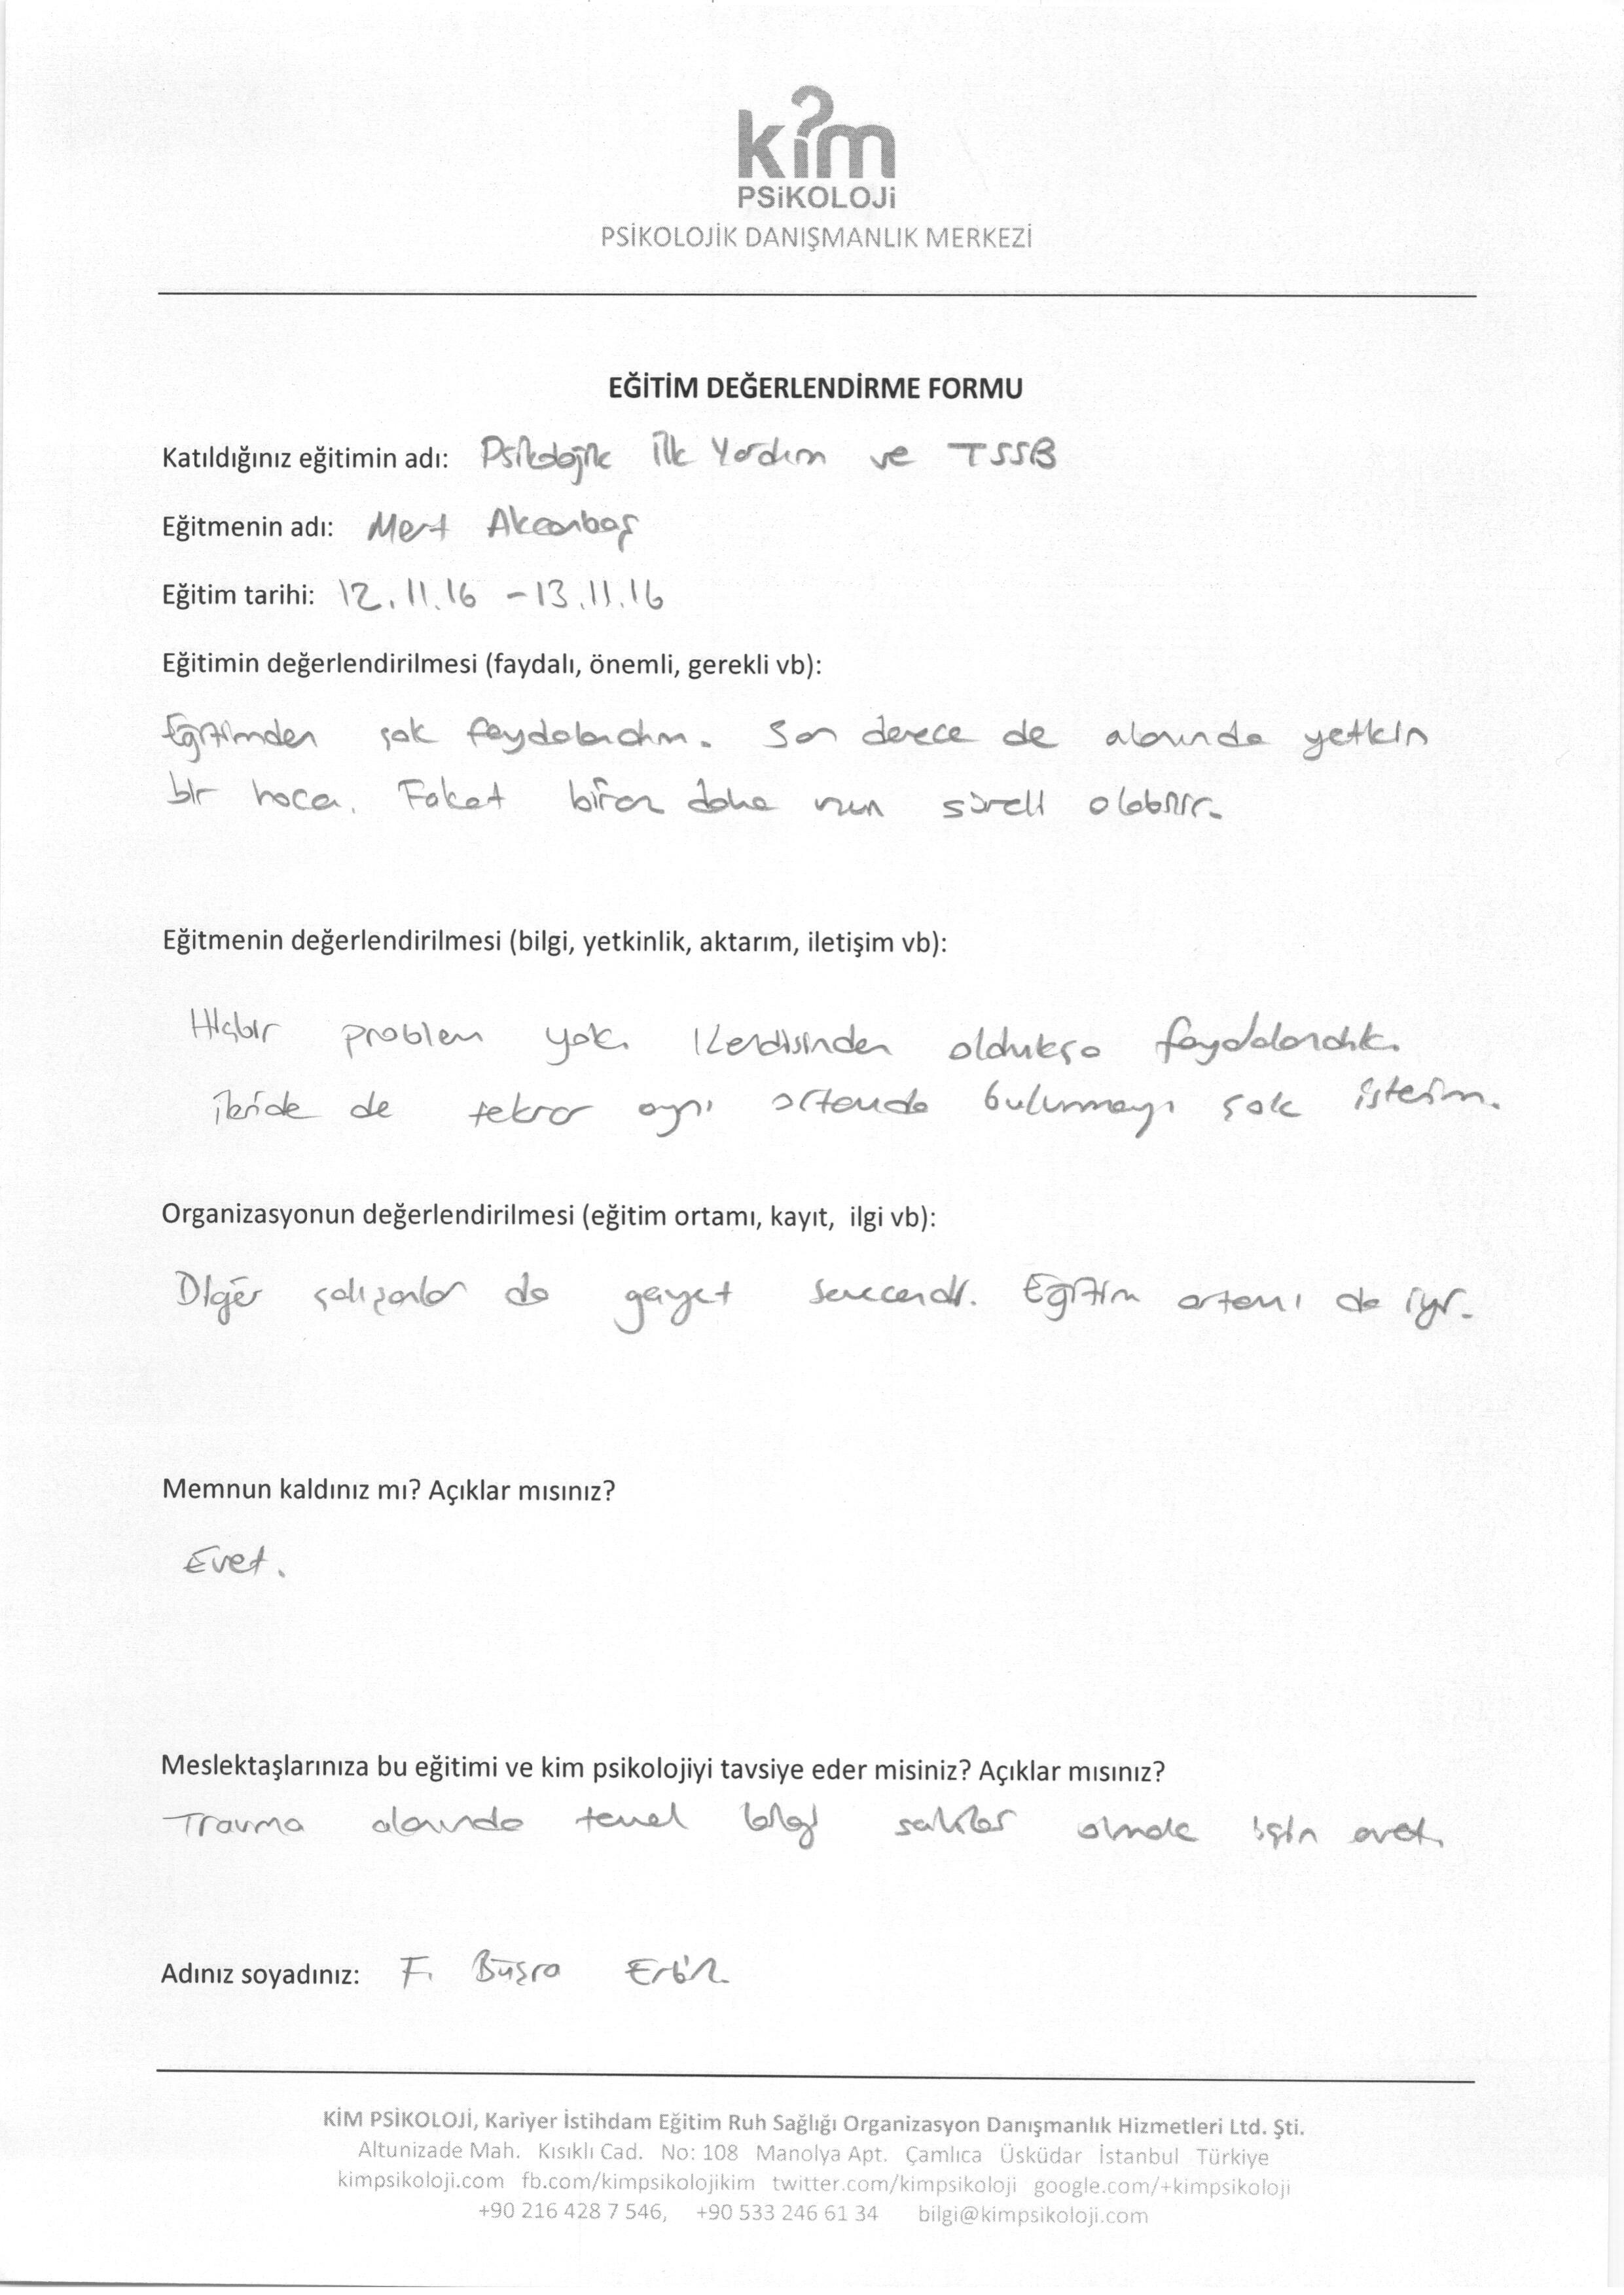 kim
PSiKOLOJi
PSİKOLOJİK DANIŞMANLIK MERKEZİ
EĞİTİM DEĞERLENDİRME FORMU
Katıldığınız eğitimin adı: Psikolojik İlk Yardım ve TSSB
Eğitmenin adı: Mert Akcanbaş
Eğitim tarihi: 12.11.16 - 13.11.16
Eğitimin değerlendirilmesi (faydalı, önemli, gerekli vb):
Eğitimden çok faydalandım. Son derece de alanında yetkin
bir hoca. Fakat biraz daha uzun süreli olabilir.
Eğitmenin değerlendirilmesi (bilgi, yetkinlik, aktarım, iletişim vb):
Hiçbir problem yok. Kendisinden oldukça faydalandık.
İleride de tekrar aynı ortamda bulunmayı çok isterim.
Organizasyonun değerlendirilmesi (eğitim ortamı, kayıt, ilgi vb):
Diğer çalışanlar da gayet sevecendi. Eğitim ortamı da iyi.
Memnun kaldınız mı? Açıklar mısınız?
Evet.
Meslektaşlarınıza bu eğitimi ve kim psikolojiyi tavsiye eder misiniz? Açıklar mısınız?
Travma alanında temel bilgi sahibi olmak için evet.
Adınız soyadınız: F. Büşra
KİM PSİKOLOJİ, Kariyer İstihdam Eğitim Ruh Sağlığı Organizasyon Danışmanlık Hizmetleri Ltd. Şti.
Altunizade Mah. Kısıklı Cad. No: 108 Manolya Apt. Çamlıca Üsküdar İstanbul Türkiye
kimpsikoloji.com fb.com/kimpsikolojikim twitter.com/kimpsikoloji google.com/+kimpsikoloji
+90 216 428 7 546, +90 533 246 61 34 bilgi@kimpsikoloji.com